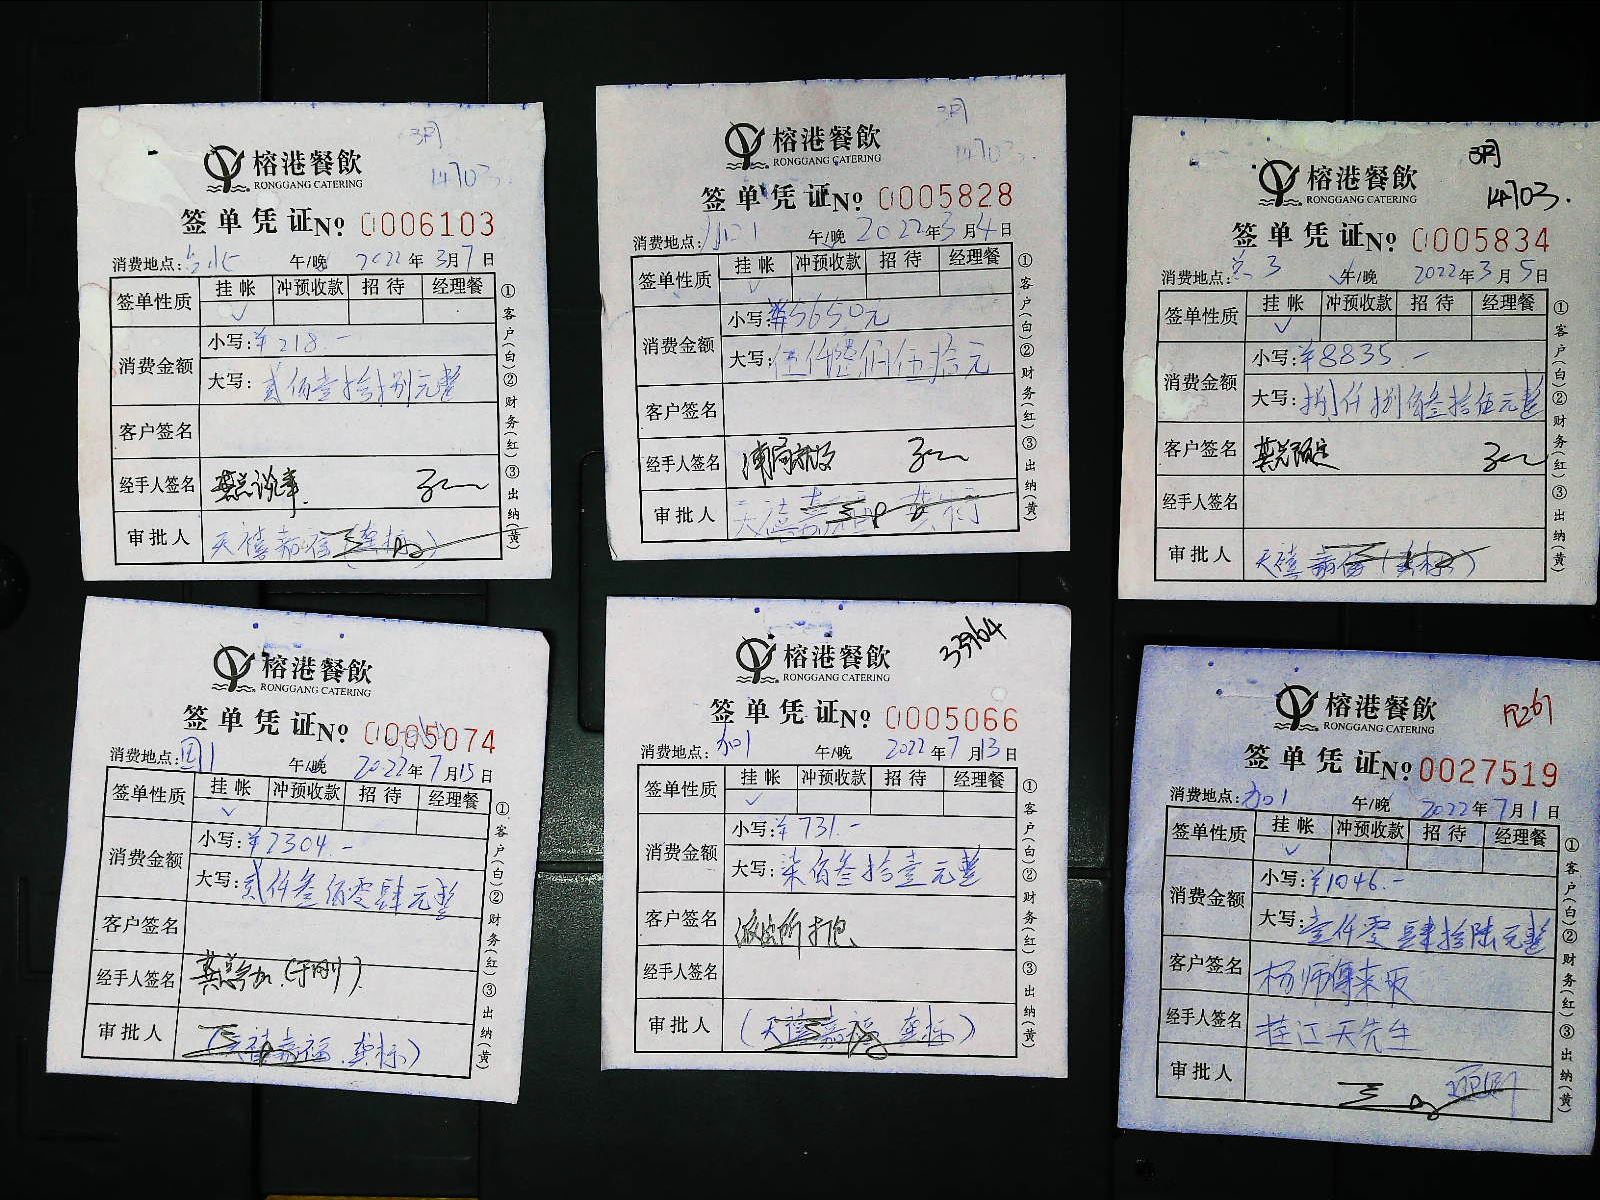 3月
14703.
榕港餐飲
RONGGANG CATERING
签单凭证 No 0006103
消费地点: 午/晚 2022年3月7日
签单性质 挂帐 冲预收款 招待 经理餐
✓
消费金额 小写:¥218.-
大写:贰佰壹拾捌元整
客户签名
经手人签名 龚总谈事
审批人 天禧嘉福(龚标)
①客户(白)②财务(红)③出纳(黄)
3月
14703.
榕港餐飲
RONGGANG CATERING
签单凭证 No 0005828
消费地点:加01 午/晚 2022年3月4日
签单性质 挂帐 冲预收款 招待 经理餐
✓
消费金额 小写:¥5650元
大写:伍仟陆佰伍拾元
客户签名
经手人签名
审批人 天禧嘉福
①客户(白)②财务(红)③出纳(黄)
3月
14703.
榕港餐飲
RONGGANG CATERING
签单凭证 No 0005834
消费地点: 3 午/晚 2022年3月5日
签单性质 挂帐 冲预收款 招待 经理餐
✓
消费金额 小写:¥8835.-
大写:捌仟捌佰叁拾伍元整
客户签名 龚总预定
经手人签名
审批人 天禧嘉福(龚标)
①客户(白)②财务(红)③出纳(黄)
榕港餐飲
RONGGANG CATERING
签单凭证 No 0005074
消费地点:园1 午/晚 2022年7月15日
签单性质 挂帐 冲预收款 招待 经理餐
✓
消费金额 小写:¥2304.-
大写:贰仟叁佰零肆元整
客户签名
经手人签名 龚总参加.(于刚).
审批人 (天禧嘉福.龚标)
①客户(白)②财务(红)③出纳(黄)
39164
榕港餐飲
RONGGANG CATERING
签单凭证 No 0005066
消费地点:加01 午/晚 2022年7月13日
签单性质 挂帐 冲预收款 招待 经理餐
✓
消费金额 小写:¥731.-
大写:柒佰叁拾壹元整
客户签名 派出所打包
经手人签名
审批人 (天禧嘉福 龚标)
①客户(白)②财务(红)③出纳(黄)
榕港餐飲
RONGGANG CATERING
签单凭证 No 0027519
消费地点:加01 午/晚 2022年7月1日
签单性质 挂帐 冲预收款 招待 经理餐
✓
消费金额 小写:¥1046.-
大写:壹仟零肆拾陆元整
客户签名 杨师傅来取
经手人签名 桂江天先生
审批人
①客户(白)②财务(红)③出纳(黄)